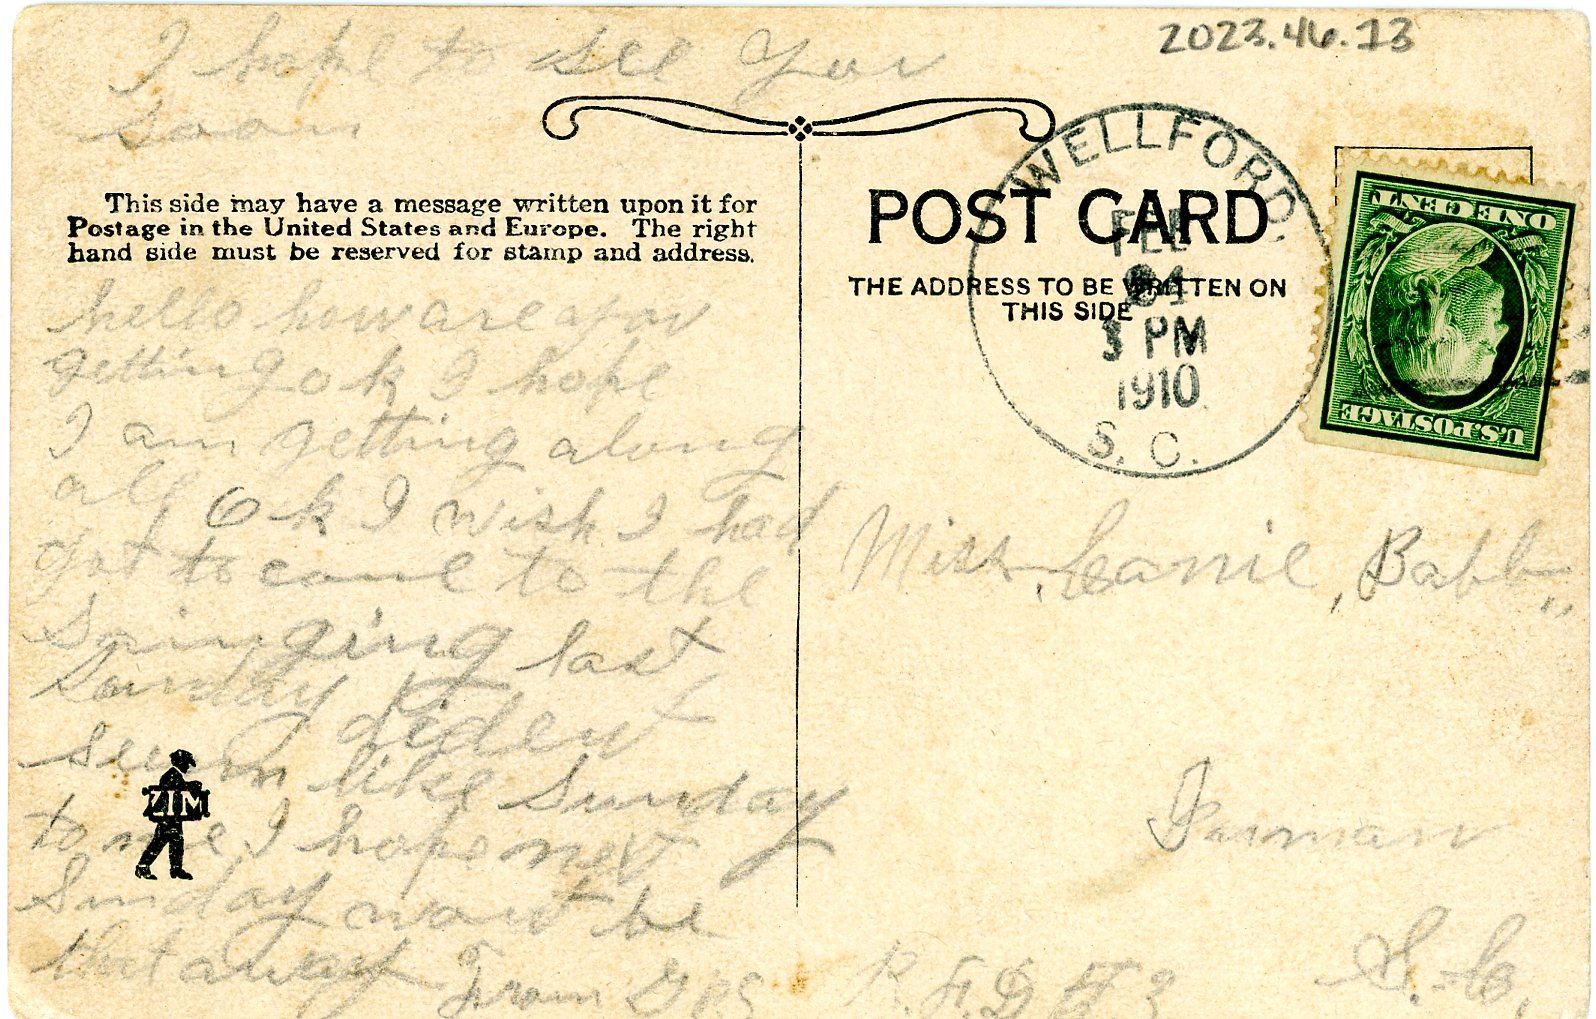 2023.46.13
I hope to see you
soon
This side may have a message written upon it for
Postage in the United States and Europe. The right
hand side must be reserved for stamp and address.
hello how are you
getting ok I hope
I am getting along
all Ok I wish I had
got to come to the
singing last
Sunday it
diden
seem like Sunday
to me I hope next
Sunday wont be
that away From
ZIM
POST CARD
THE ADDRESS TO BE WRITTEN ON
THIS SIDE
WELLFORD.
FEB
24
3 PM
1910
S. C.
ONE CENT
U.S. POSTAGE
Miss, Canie, Babb,,
Inman
S. C.
R.F.D # 3